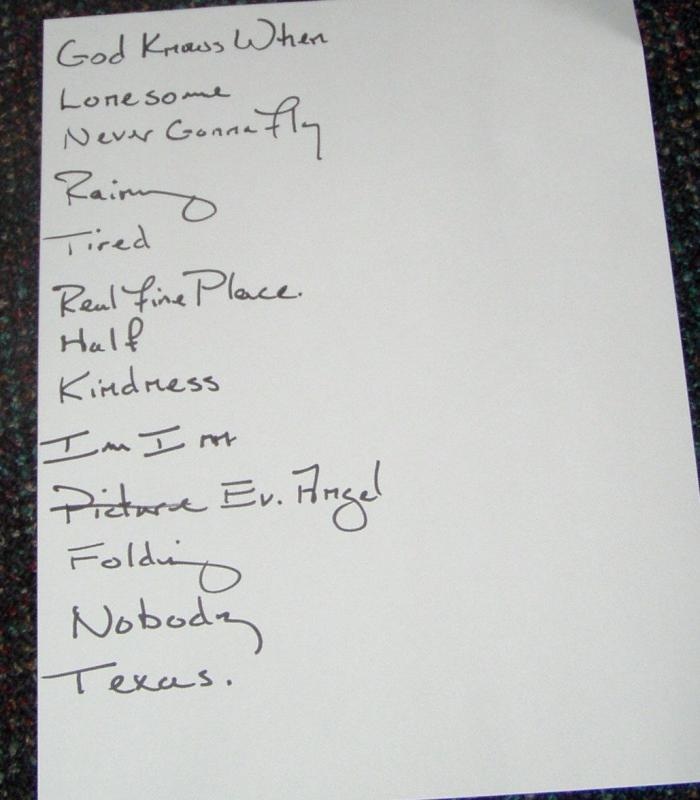 God Knows When
Lonesome
Never Gonna Fly
Rainy
Tired
Real Fine Place.
Half
Kindness
Im In
Picture Ev. Angel
Folding
Nobody
Texas.